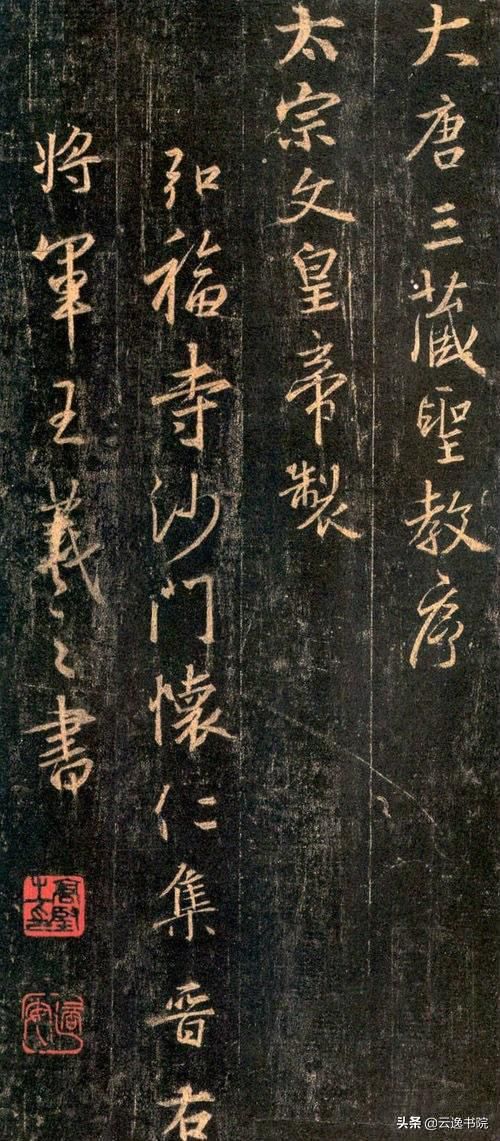 大唐三藏聖教序
太宗文皇帝製
弘福寺沙門懷仁集晉右
將軍王羲之書
头条 @云逸书院